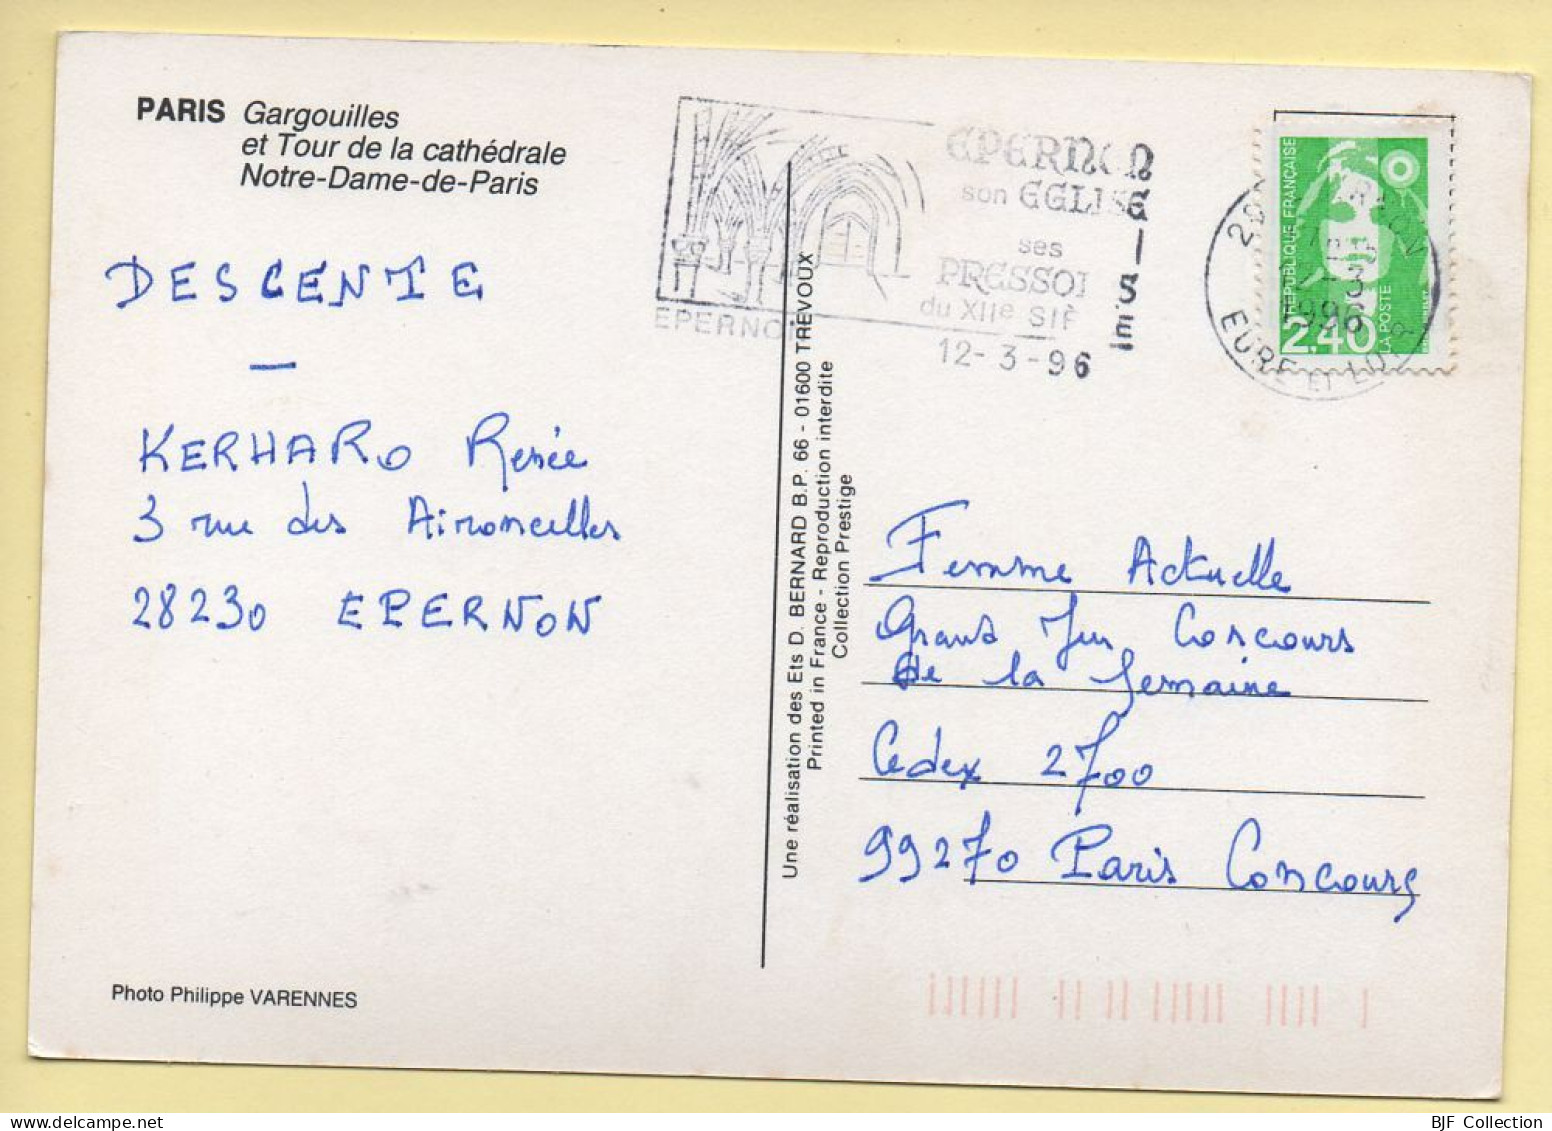 PARIS Gargouilles
et Tour de la cathédrale
Notre-Dame-de-Paris
DESCENTE
—
KERHARO Renée
3 rue des Aironcelles
28230 EPERNON
Photo Philippe VARENNES
Une réalisation des Ets D. BERNARD B.P. 66 - 01600 TREVOUX
Printed in France - Reproduction interdite
Collection Prestige
EPERNON
son EGLISE
ses
PRESSOI
du XIIe SIÈ
12-3-96
EPERNON
RÉPUBLIQUE FRANÇAISE
2,40
LA POSTE
1996
EURE ET LOIR
Femme Actuelle
Grand Jeu Concours
de la Semaine
Cedex 2700
99270 Paris Concours
BJF Collection